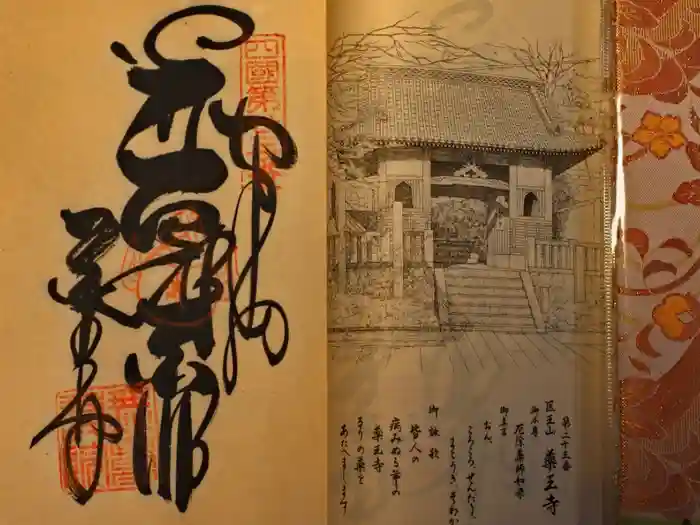 第二十三番
医王山 薬王寺
御本尊 厄除薬師如来
御真言
おん、
ころころ、せんだり、
まとうぎ、そわか
御詠歌
皆人の
病みぬる年の
薬王寺
るりの薬を
あたへまします
四國第
奉納
薬王寺